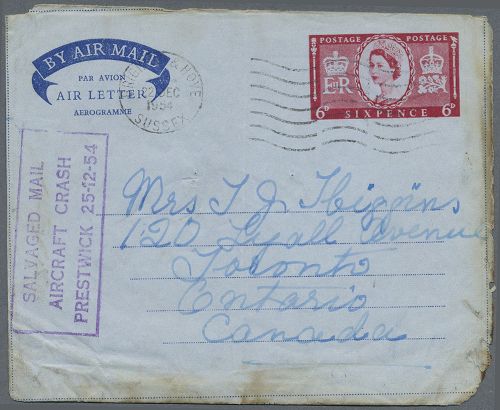 BY AIR MAIL
PAR AVION
AIR LETTER
AEROGRAMME
& HOVE
22 DEC
1954
SUSSEX
POSTAGE POSTAGE
E R
6D SIXPENCE 6D
SALVAGED MAIL
AIRCRAFT CRASH
PRESTWICK 25-12-54
Mrs T J Higgins
120 Lyall Avenue
Toronto
Ontario
Canada